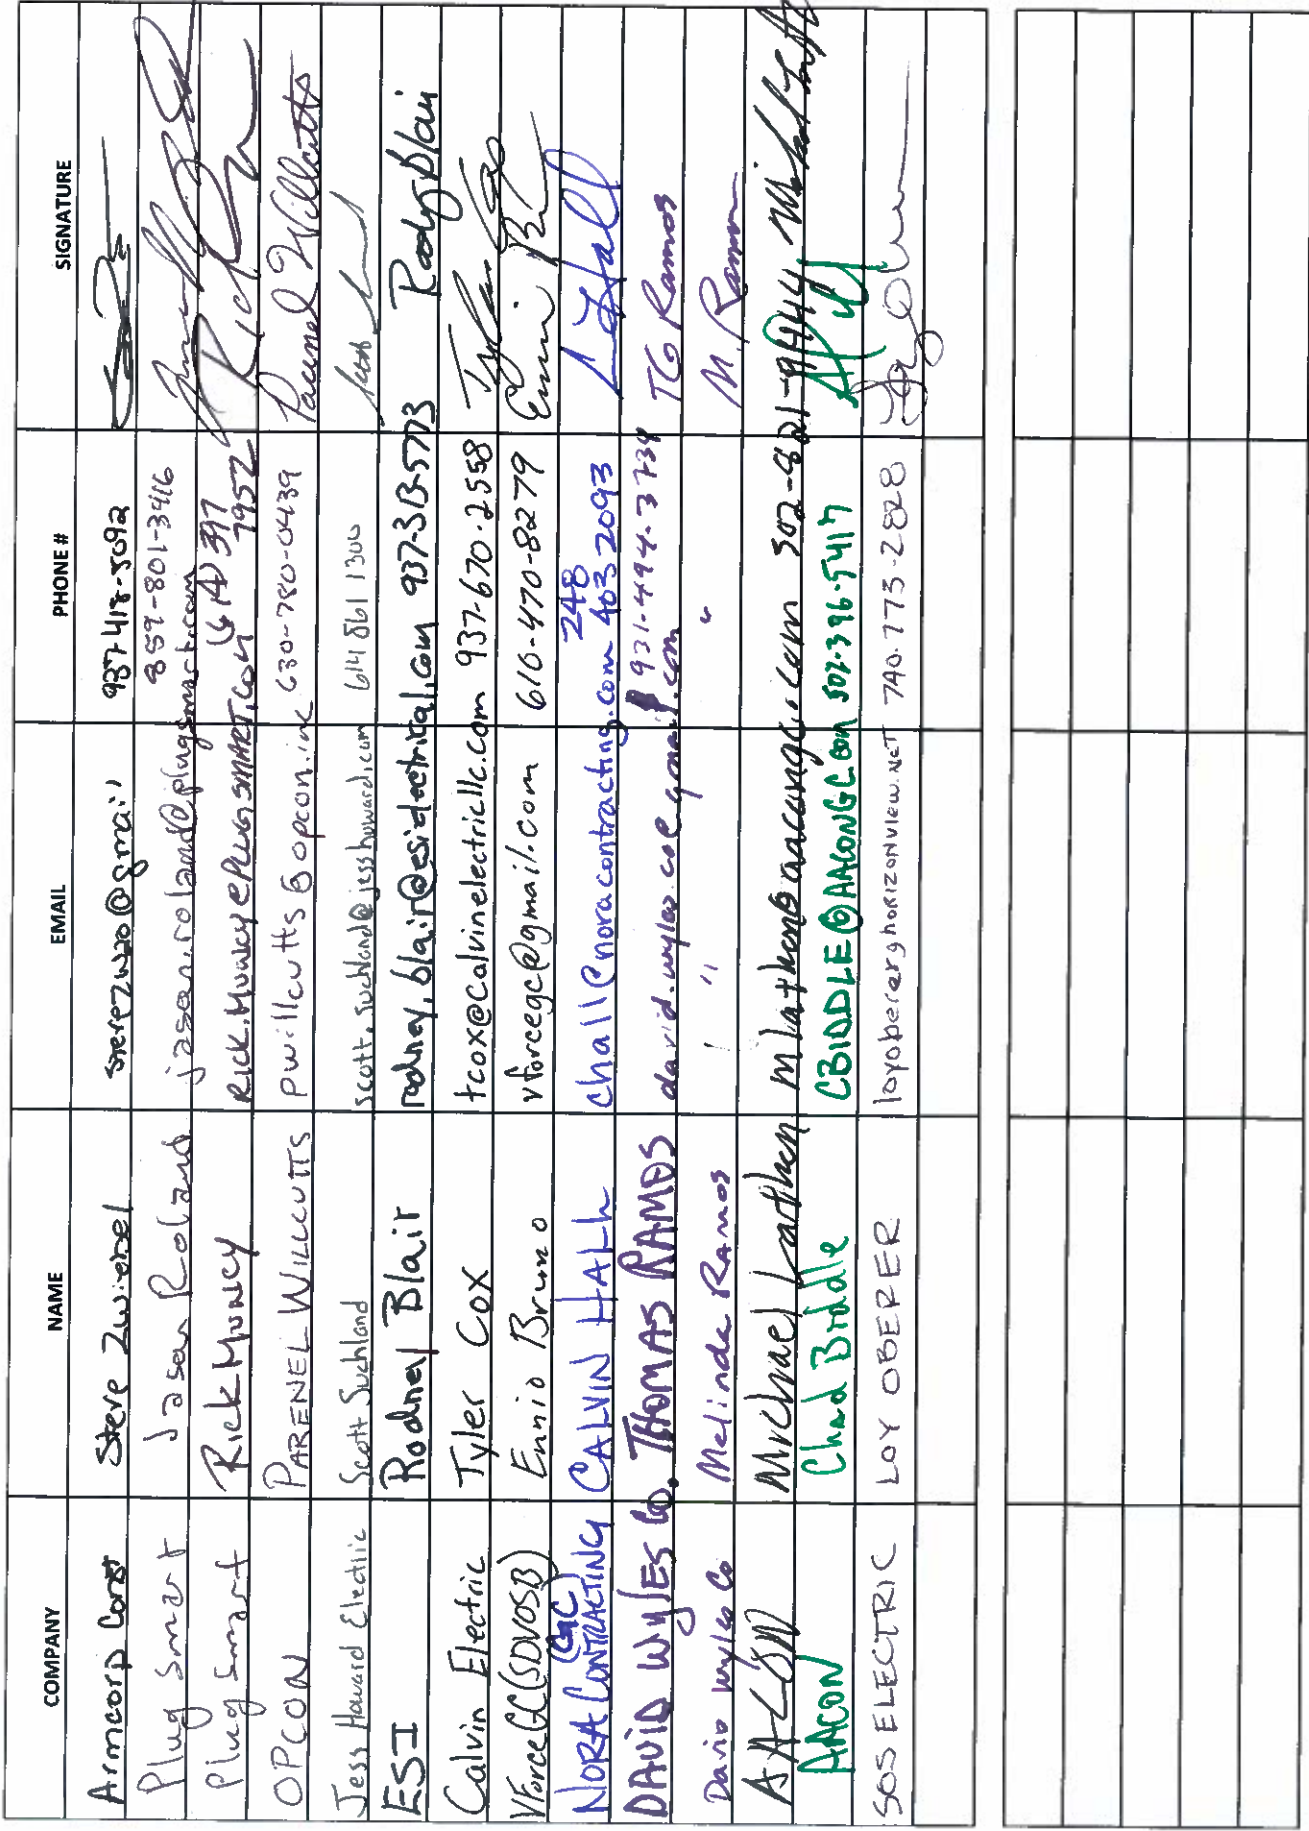 COMPANY NAME EMAIL PHONE # SIGNATURE
Armcorp Const Steve Zwiesel stevezw20@gmail 937-418-5092
Plug Smart Jason Roland jason.roland@plugsmart.com 859-801-3416
Plug Smart Rick Muncy Rick.Muncy@PLUGSMART.COM (614) 397 7952
OPCON PARENEL WILLCUTTS pwillcutts@opcon.inc 630-780-0439 Parenel Willcutts
Jess Howard Electric Scott Suchland scott.suchland@jesshoward.com 614 561 1300
ESI Rodney Blair rodney.blair@esielectrical.com 937-313-5773 Rodney Blair
Calvin Electric Tyler Cox tcox@calvinelectricllc.com 937-670-2558 Tyler Cox
VForce GC (SDVOSB) Ennio Bruno vforcegc@gmail.com 610-470-8279
NORA CONTRACTING (GC) CALVIN HALL chall@noracontracting.com 248 403 2093
DAVID WYLES Co. THOMAS RAMOS david.wyles.co@gmail.com 931-494-3734 TG Ramos
David Wyles Co Melinda Ramos " " M. Ramos
AACON Michael Lathen mlathen@aacongc.com 502-821-9444
AACON Chad Biddle CBIDDLE@AACONGC.com 502-396-5417
SOS ELECTRIC LOY OBERER loyoberer@HORIZONVIEW.NET 740-773-2828